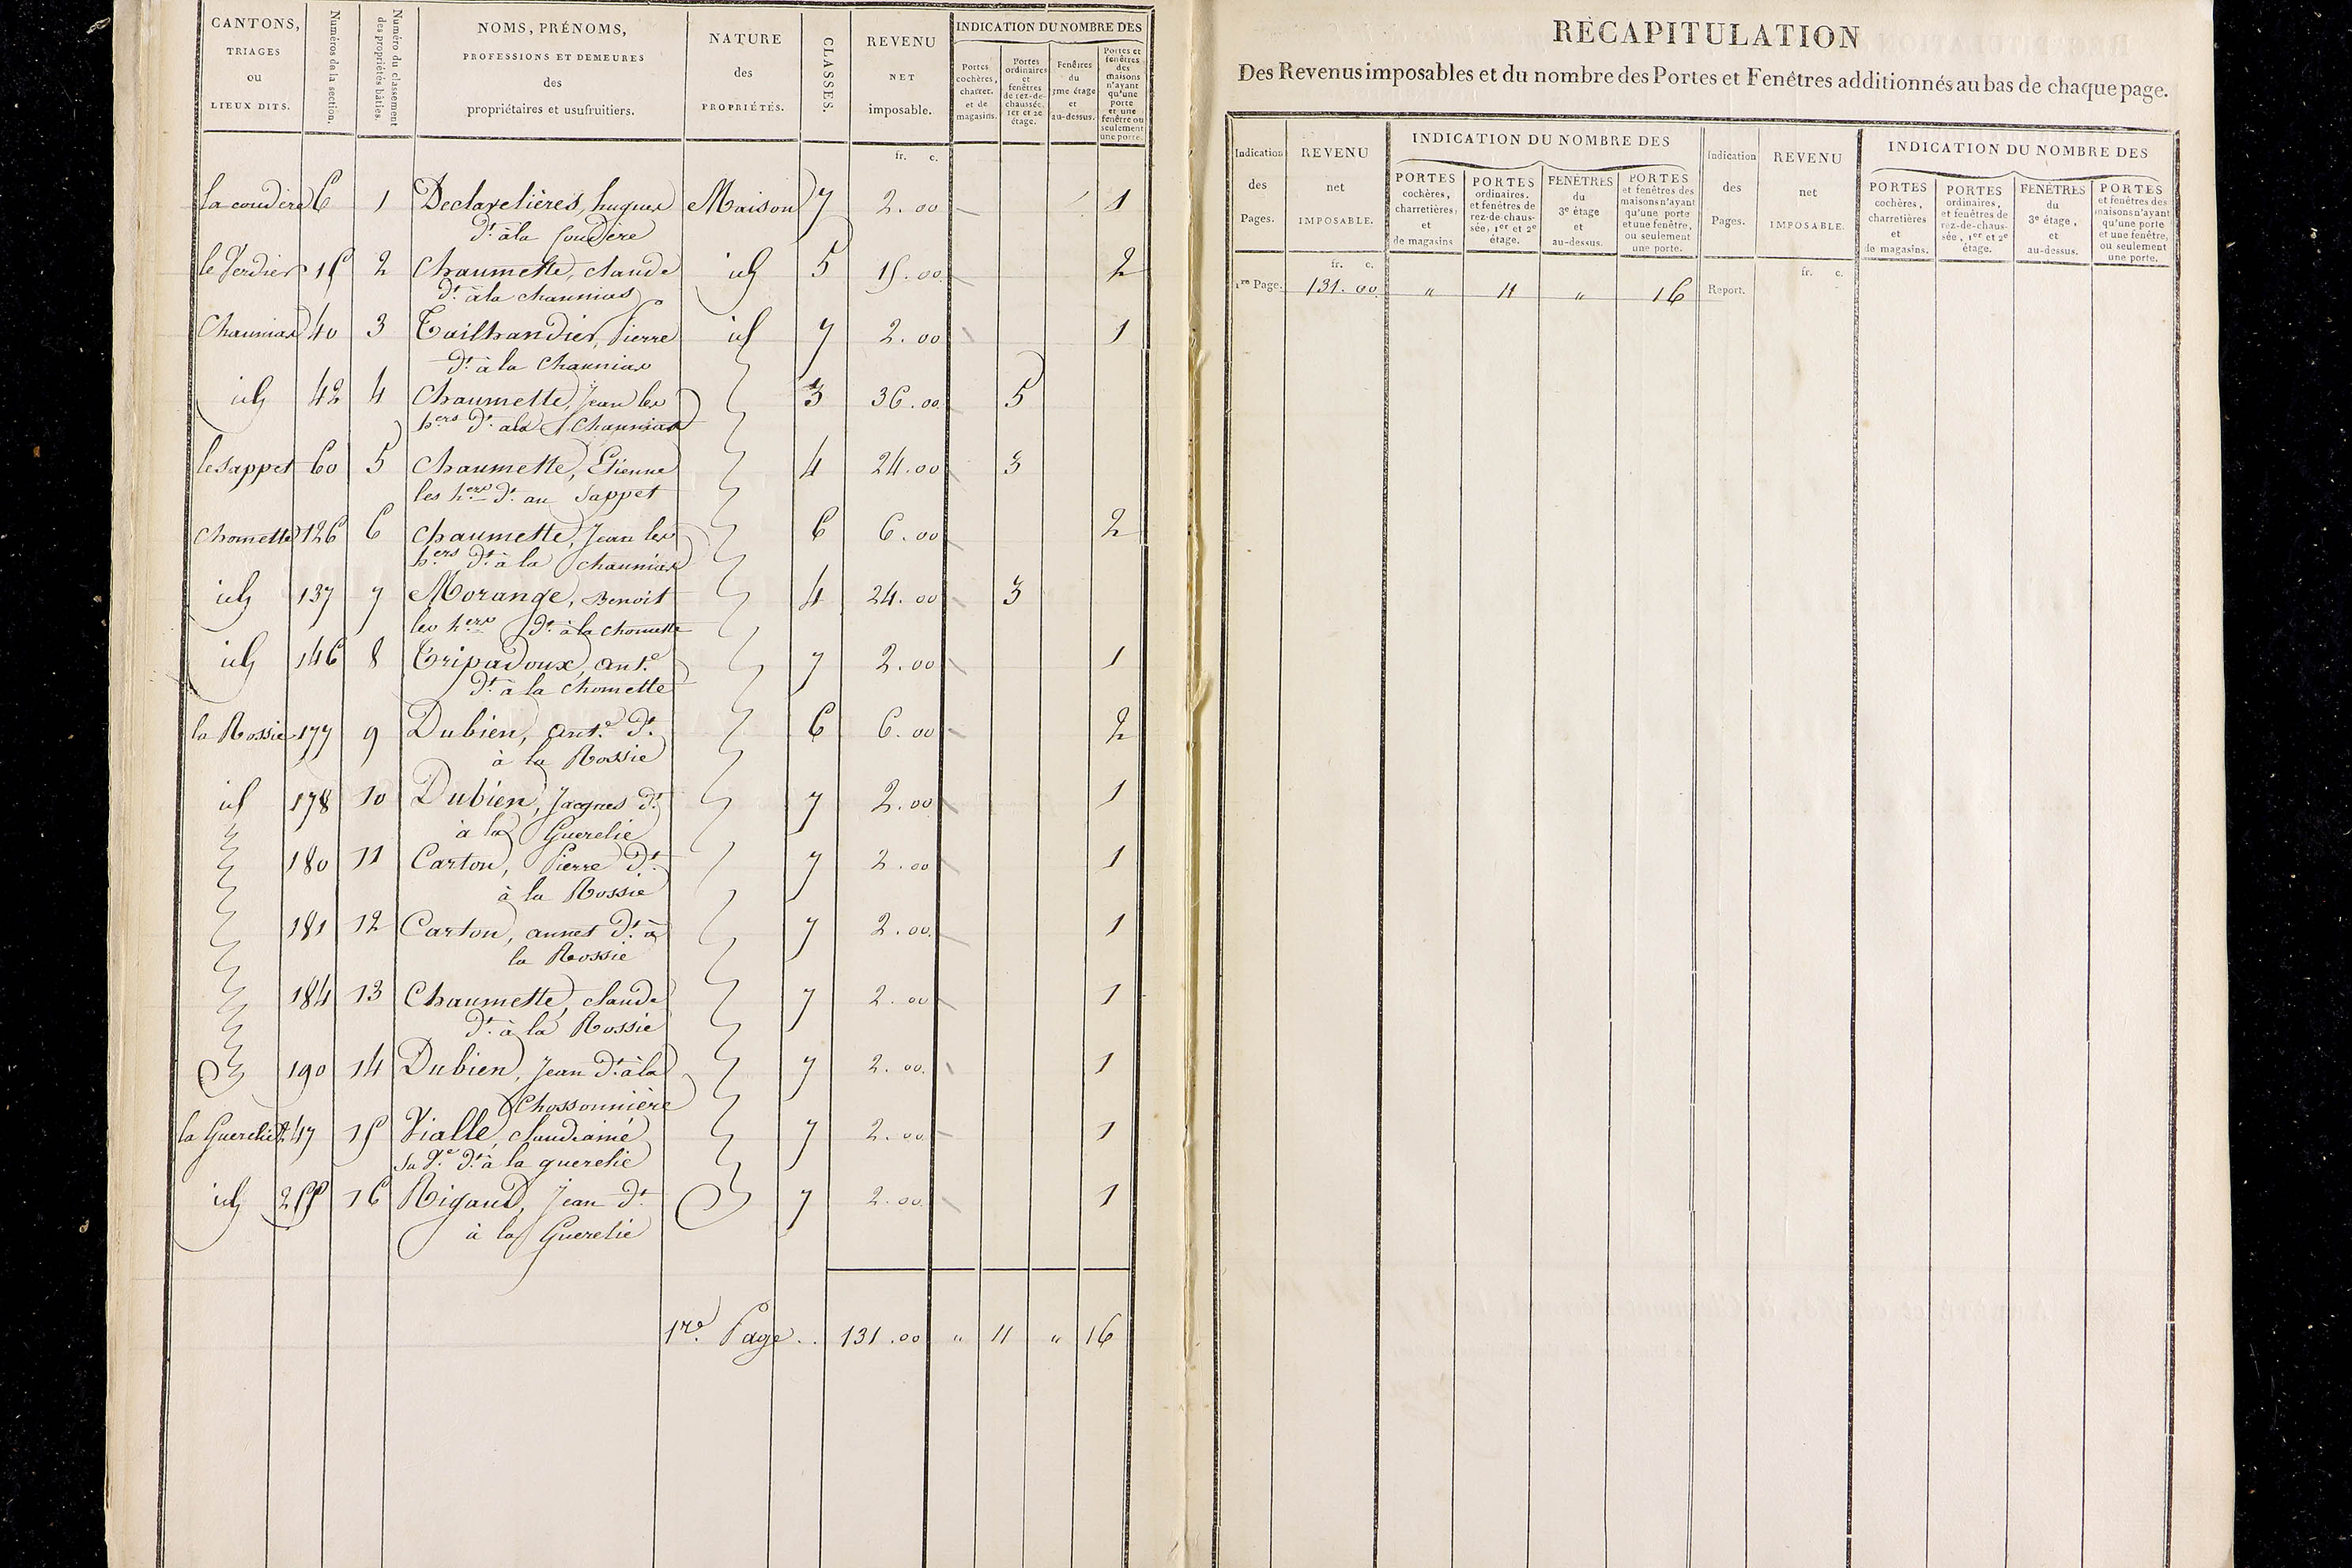 CANTONS, TRIAGES ou LIEUX DITS.
Numéros de la section.
Numéro du classement des propriétés bâties.
NOMS, PRÉNOMS, PROFESSIONS ET DEMEURES des propriétaires et usufruitiers.
NATURE des PROPRIÉTÉS.
CLASSES.
REVENU NET imposable.
INDICATION DU NOMBRE DES
Portes cochères, charret. et de magasins.
Portes ordinaires et fenêtres de rez-de-chaussée, 1er et 2e étage.
Fenêtres du 3me étage et au-dessus.
Portes et fenêtres des maisons n'ayant qu'une porte et une fenêtre ou seulement une porte.
fr. c.
la coudère 6 1 Declavelières, hugues Maison 7 2.00 1
dt. à la Coudère
le Verdier 15 2 Chaumette, claude id 5 15.00 2
dt. à la chaunias
Chaunias 40 3 Tailhandier, Pierre id 7 2.00 1
dt. à la Chaunias
id 42 4 Chaumette, Jean les 3 36.00 5
hers dt. à la Chaunias
le Sappet 60 5 Chaumette, Etienne 4 24.00 3
les hers dt. au Sappet
Chomette 126 6 Chaumette, Jean les 6 6.00 2
hers dt. à la Chaunias
id 137 7 Morange, Benoit 4 24.00 3
les hers dt. à la Chomette
id 146 8 Tripadoux, ant.e 7 2.00 1
dt. à la Chomette
la Rossie 177 9 Dubien, ant.e dt. 6 6.00 2
à la Rossie
id 178 10 Dubien, Jacques dt. 7 2.00 1
à la Guerelie
180 11 Carton, Pierre dt. 7 2.00 1
à la Rossie
181 12 Carton, annet dt. à 7 2.00 1
la Rossie
184 13 Chaumette, claude 7 2.00 1
dt. à la Rossie
190 14 Dubien, Jean dt. à la 7 2.00 1
Chossonnière
la Guerelie 247 15 Vialle, claude ainé 7 2.00 1
sa v.e dt. à la guerelie
id 255 16 Rigaud, Jean dt. 7 2.00 1
à la Guerelie
1re. Page.. 131.00 " 11 " 16
RÉCAPITULATION
Des Revenus imposables et du nombre des Portes et Fenêtres additionnés au bas de chaque page.
Indication des Pages.
REVENU net IMPOSABLE.
INDICATION DU NOMBRE DES
PORTES cochères, charretières, et de magasins
PORTES ordinaires, et fenêtres de rez-de-chaussée, 1er et 2e étage.
FENÊTRES du 3e étage et au-dessus.
PORTES et fenêtres des maisons n'ayant qu'une porte et une fenêtre, ou seulement une porte.
Indication des Pages.
REVENU net IMPOSABLE.
INDICATION DU NOMBRE DES
PORTES cochères, charretières et de magasins.
PORTES ordinaires, et fenêtres de rez-de-chaussée, 1er et 2e étage.
FENÊTRES du 3e étage, et au-dessus.
PORTES et fenêtres des maisons n'ayant qu'une porte et une fenêtre, ou seulement une porte.
fr. c.
fr. c.
1re Page. 131.00 " 11 " 16 Report.